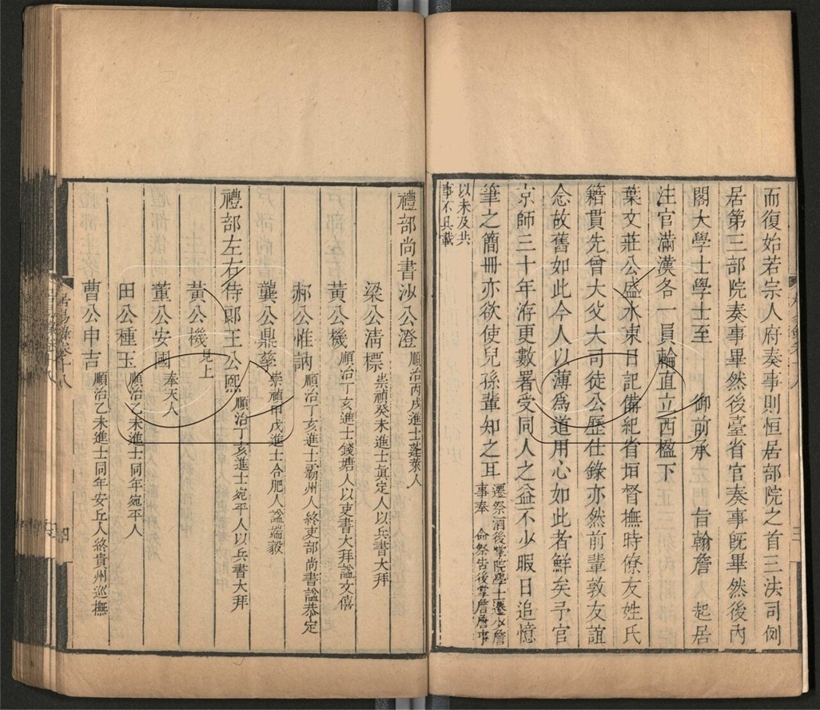 而復始若宗人府奏事則恒居部院之首三法司例
居第三部院奏事畢然後臺省官奏事既畢然後內
閣大學士學士至 御前承 旨翰詹 起居
注官滿漢各一員輪直立西楹下
葉文莊公盛水東日記備紀省垣督撫時僚友姓氏
籍貫先曾大父大司徒公歷仕錄亦然前輩敦友誼
念故舊如此今人以薄為道用心如此者鮮矣予官
京師三十年洊更數署受同人之益不少暇日追憶
筆之簡冊亦欲使兒孫輩知之耳遷祭酒後掌院學士遷少詹
事奉 命祭告後掌詹事
以未及共
事不具載
禮部尚書沙公澄順治丙戌進士蓬萊人
梁公清標崇禎癸未進士真定人以兵書大拜
黃公機順治丁亥進士錢塘人以吏書大拜謚文僖
郝公惟訥順治丁亥進士霸州人終吏部尚書謚恭定
龔公鼎孳崇禎甲戌進士合肥人謚端毅
禮部左右侍郎王公熙順治丁亥進士宛平人以兵書大拜
黃公機見上
董公安國奉天人
田公種玉順治乙未進士同年宛平人
曹公申吉順治乙未進士同年安丘人終貴州巡撫